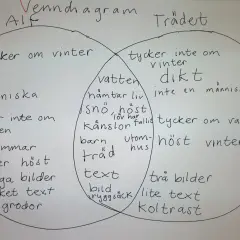 Venndiagram
Alf
Trädet
cker om vinter
niska
inte om
mmar
er höst
ga bilder
ket text
grodor
vatten
hämtar liv
snö höst
lör har
känslor fallit
barn utom-
hus
träd
text
bild
ryggsäck
tycker inte om
vinter
dikt
inte en männis
tycker om va
höst vinter
två bilder
lite text
koltrast